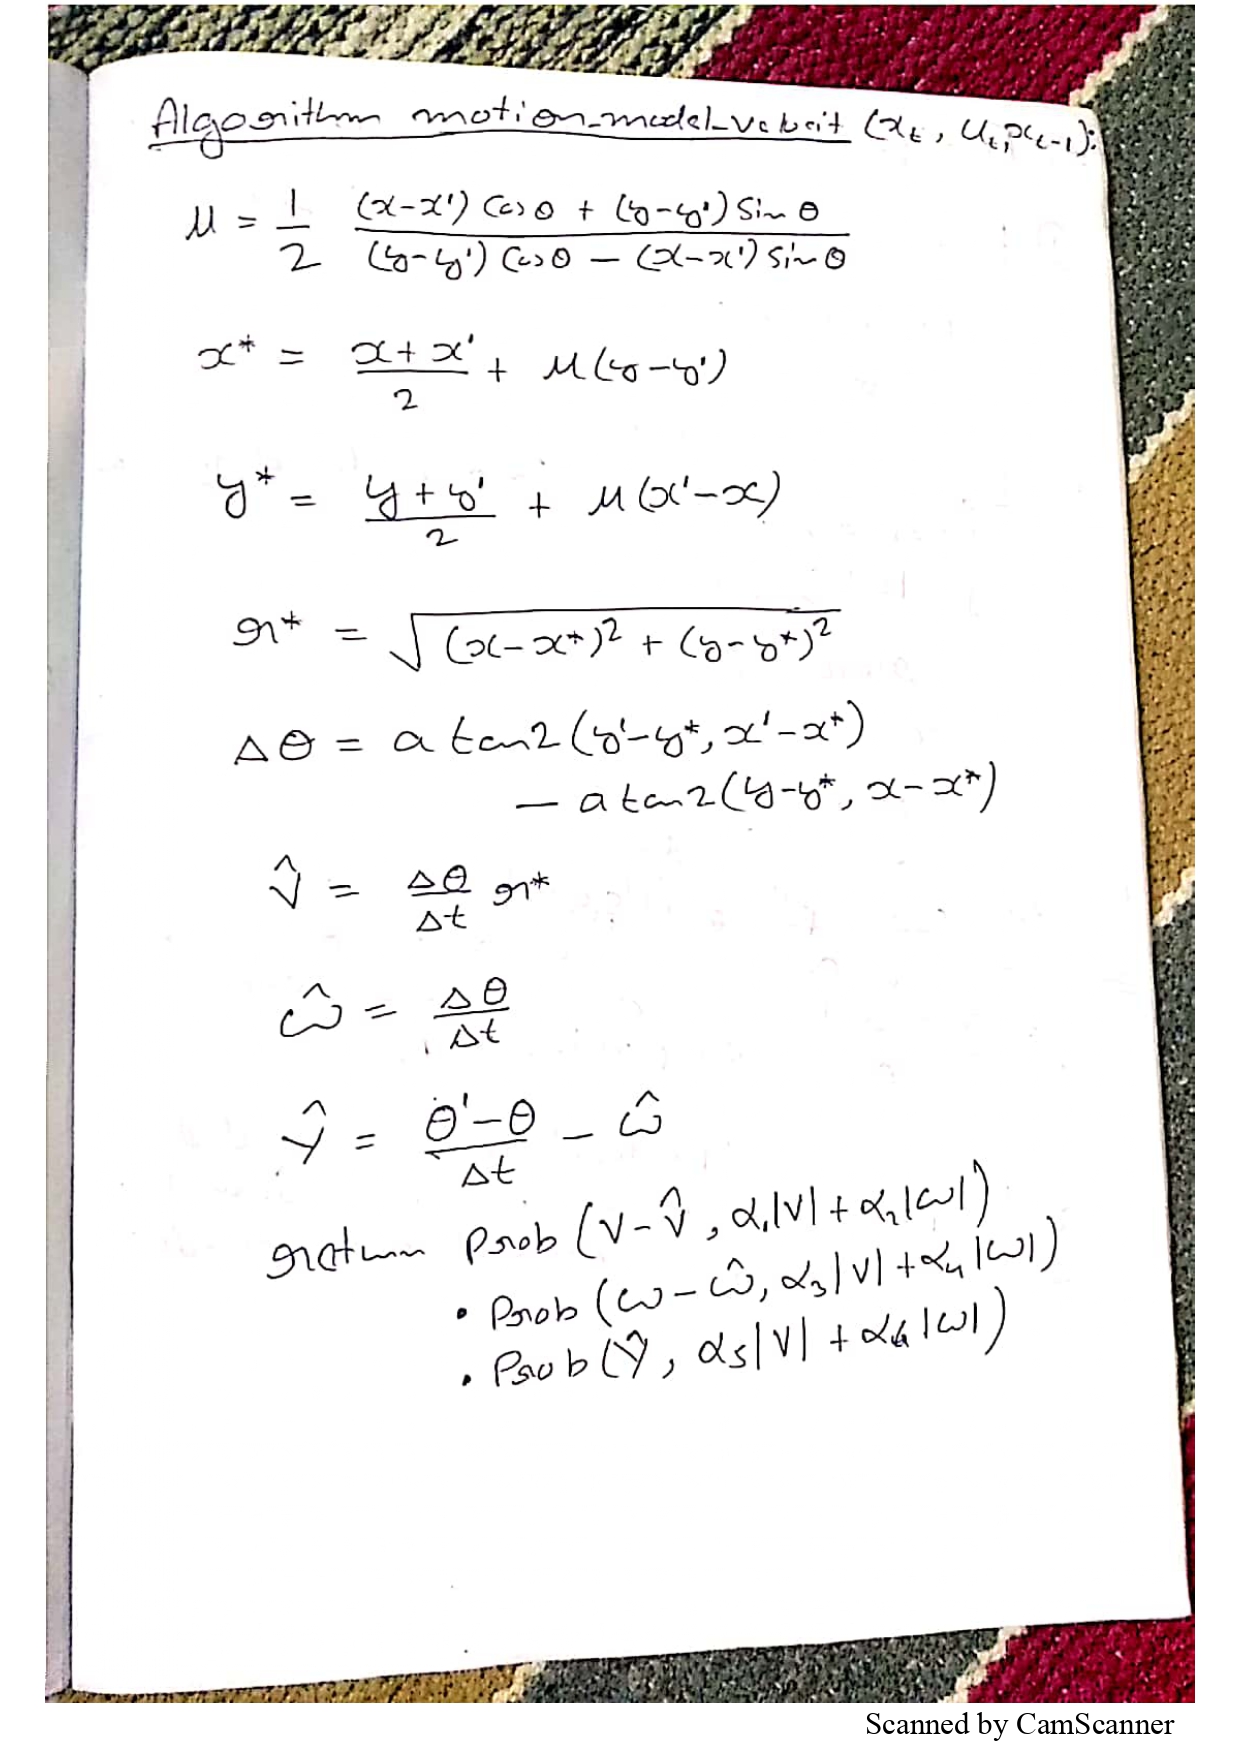 Algorithm motion_model_velocity (xₜ, uₜ, xₜ₋₁):
μ = 1/2 ((x-x') cos θ + (y-y') sin θ) / ((y-y') cos θ - (x-x') sin θ)
x* = (x+x')/2 + μ(y-y')
y* = (y+y')/2 + μ(x'-x)
r* = √((x-x*)² + (y-y*)²)
Δθ = atan2(y'-y*, x'-x*)
- atan2(y-y*, x-x*)
v̂ = Δθ/Δt r*
ω̂ = Δθ/Δt
γ̂ = (θ'-θ)/Δt - ω̂
return prob (v-v̂, α₁|v| + α₂|ω|)
· prob (ω-ω̂, α₃|v| + α₄|ω|)
· prob (γ̂, α₅|v| + α₆|ω|)
Scanned by CamScanner